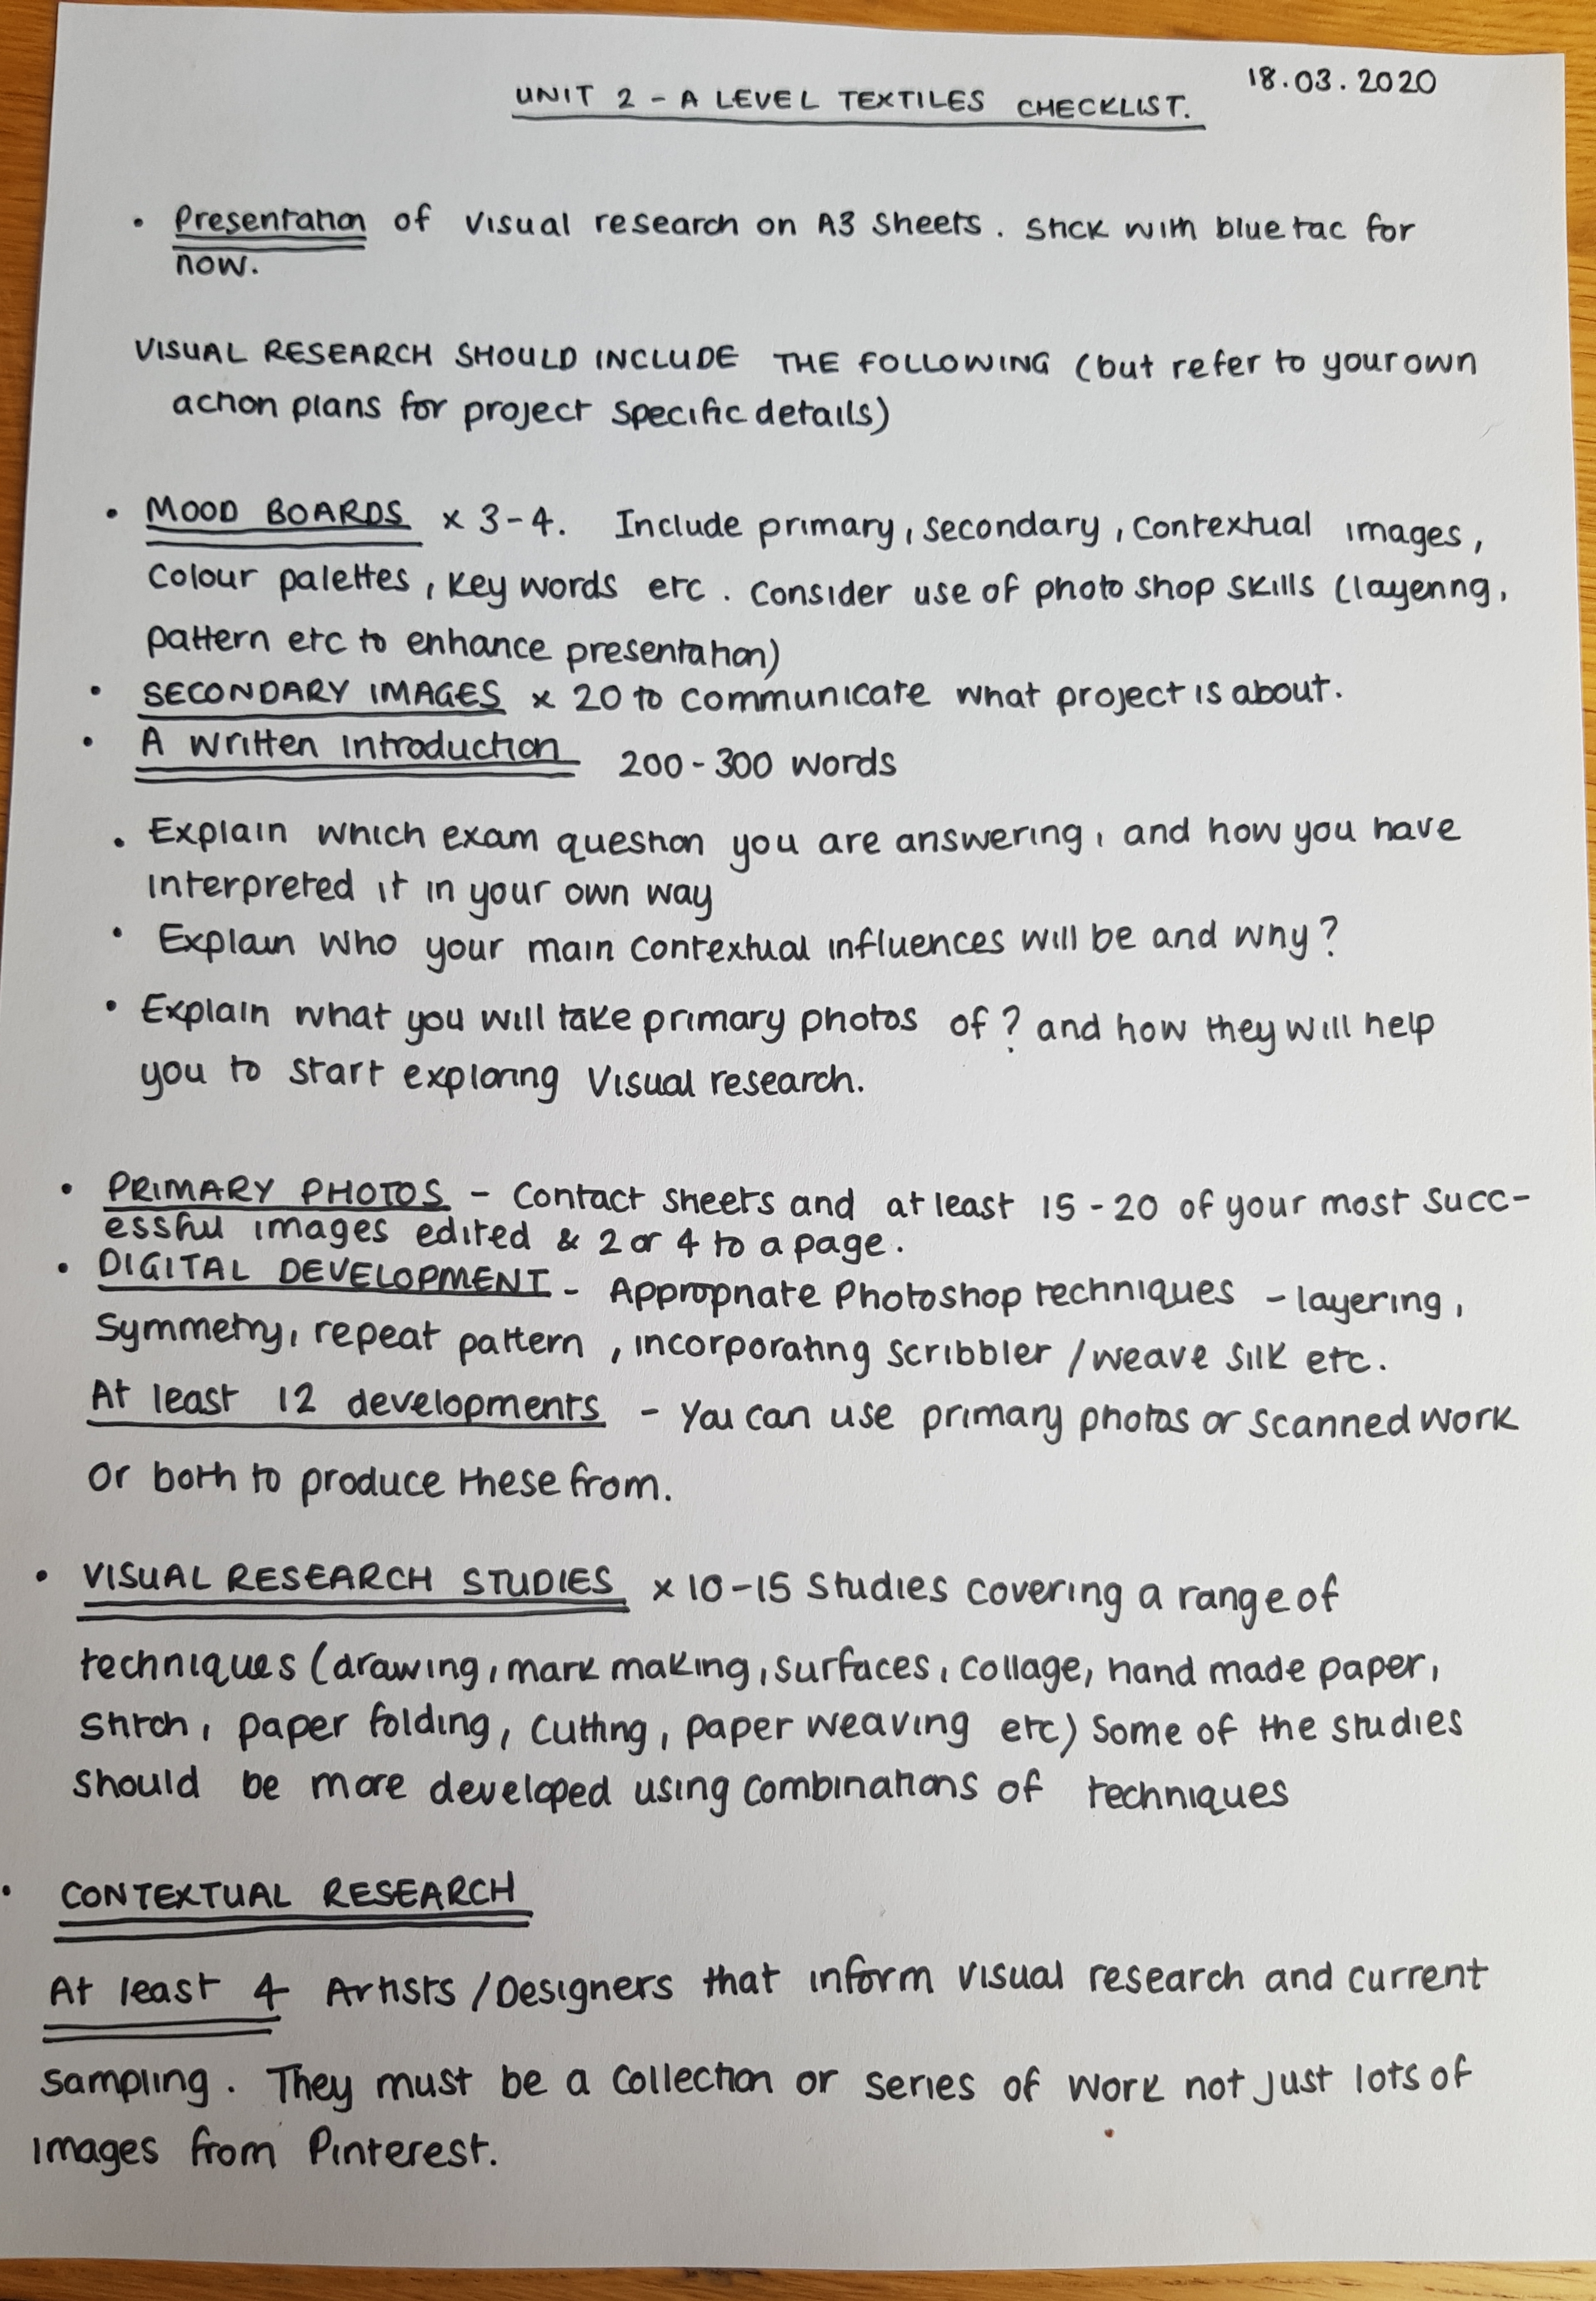 18.03.2020
UNIT 2 - A LEVEL TEXTILES CHECKLIST.
• Presentation of visual research on A3 Sheets. Stick with blue tac for
now.
VISUAL RESEARCH SHOULD INCLUDE THE FOLLOWING (but refer to your own
action plans for project specific details)
• MOOD BOARDS x 3-4. Include primary, secondary, contextual images,
colour palettes, key words etc. Consider use of photo shop skills (layering,
pattern etc to enhance presentation)
• SECONDARY IMAGES x 20 to communicate what project is about.
• A written introduction 200-300 words
• Explain which exam question you are answering, and how you have
interpreted it in your own way
• Explain who your main contextual influences will be and why?
• Explain what you will take primary photos of? and how they will help
you to start exploring visual research.
• PRIMARY PHOTOS - Contact sheets and at least 15-20 of your most succ-
essful images edited & 2 or 4 to a page.
• DIGITAL DEVELOPMENT - Appropriate Photoshop techniques - layering,
symmetry, repeat pattern, incorporating scribbler/weave silk etc.
At least 12 developments - You can use primary photos or scanned work
or both to produce these from.
• VISUAL RESEARCH STUDIES x 10-15 studies covering a range of
techniques (drawing, mark making, surfaces, collage, hand made paper,
stitch, paper folding, cutting, paper weaving etc) Some of the studies
should be more developed using combinations of techniques
• CONTEXTUAL RESEARCH
At least 4 Artists/Designers that inform visual research and current
sampling. They must be a collection or series of work not just lots of
images from Pinterest.